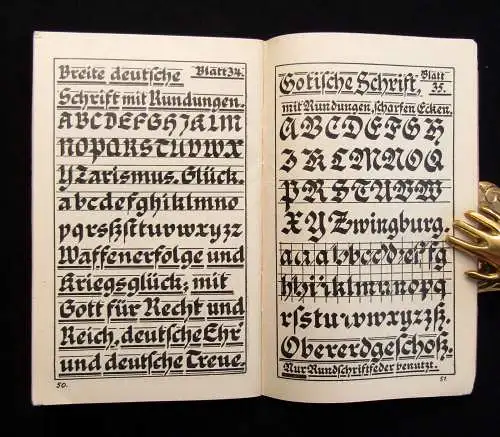 Breite deutsche
Blatt 34.
Schrift mit Rundungen.
ABCDEFGHIJKLM
NOPQRSTUVWX
YZarismus. Glück.
abcdefghiklmno
pqrsßſtuvwxyzz
Waffenerfolge und
Kriegsglück; mit
Gott für Recht und
Reich, deutsche Ehr'
und deutsche Treue.
50.
Gotische Schrift,
Blatt 35.
mit Rundungen, scharfen Ecken.
ABCDEFGH
IKLMNOQ
PRSTUVW
XYZwingburg.
hhiïklmunopq
rſstuvwxyzß.
Obererdgeschoß.
Nur Rundschriftfeder benutzt.
51.